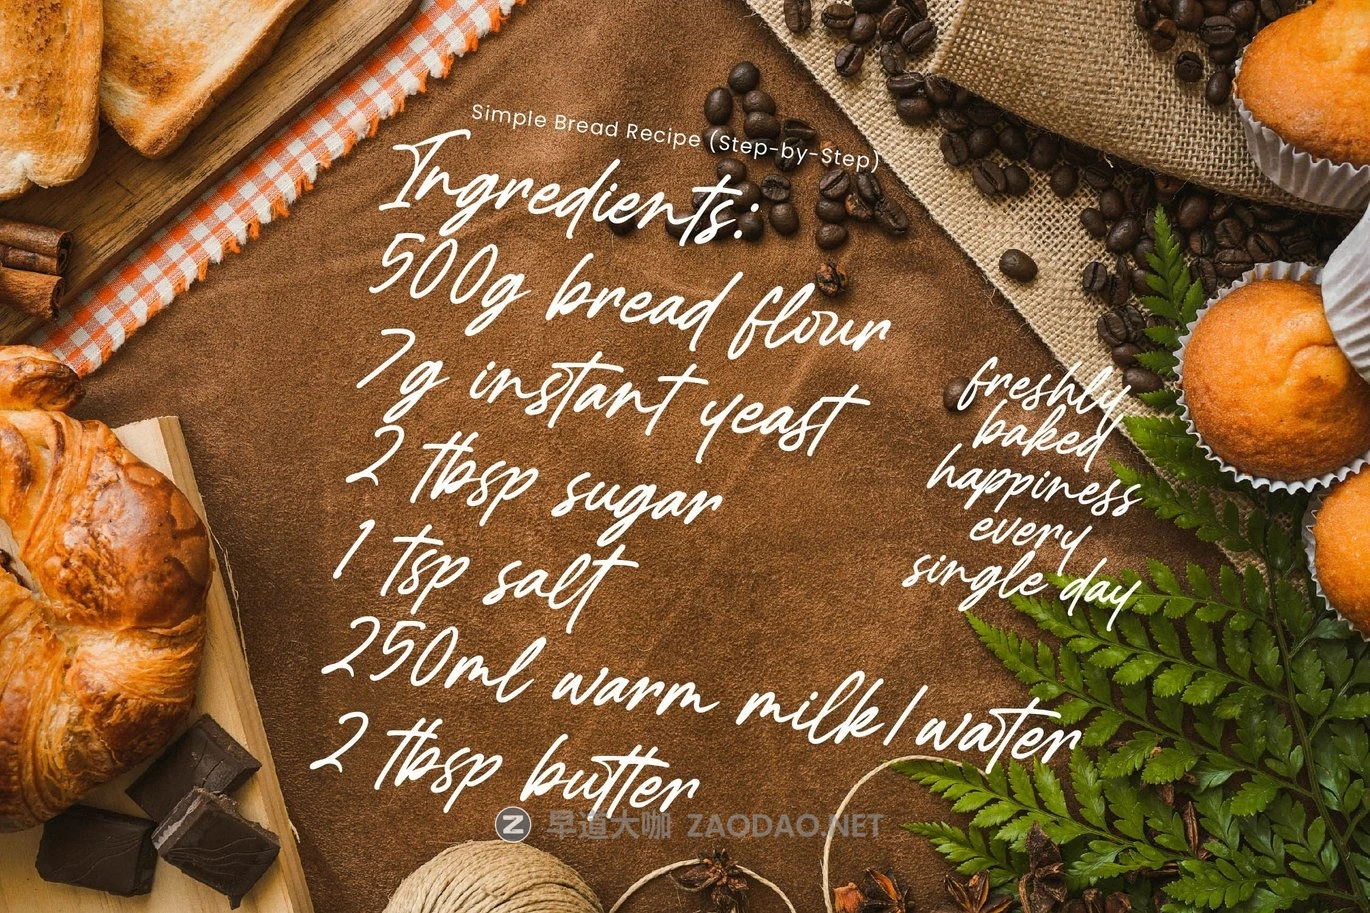 Simple Bread Recipe (Step-by-Step)
Ingredients:
500g bread flour
7g instant yeast
2 tbsp sugar
1 tsp salt
250ml warm milk/water
2 tbsp butter
freshly
baked
happiness
every
single day
Z 早道大咖 ZAODAO.NET